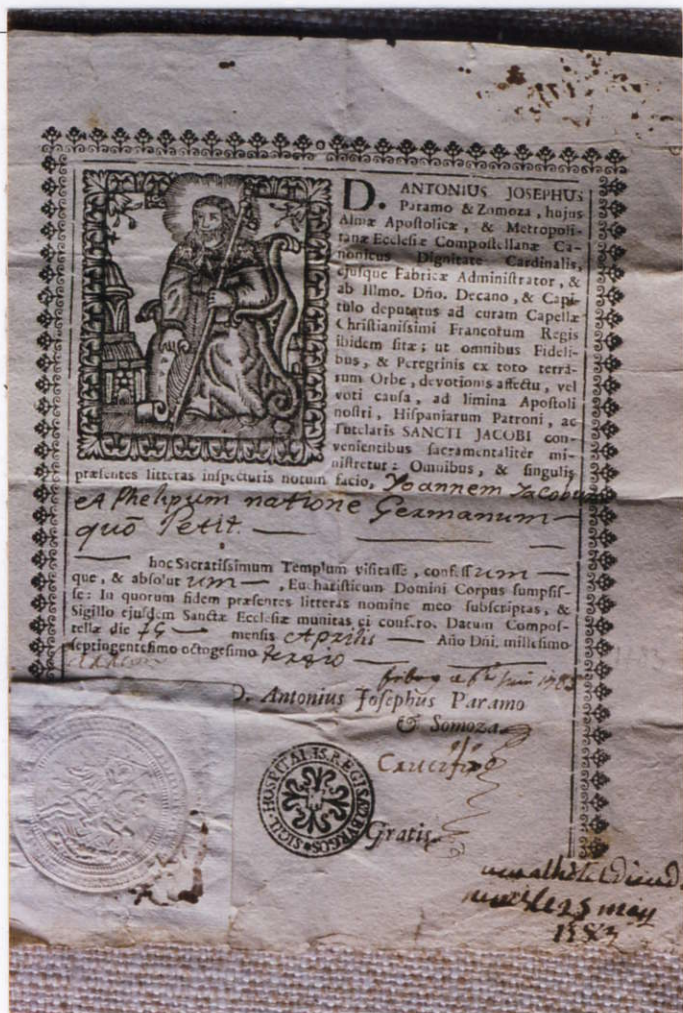 D. ANTONIUS JOSEPHUS
Paramo & Zomoza, hujus
Almæ Apostolicæ, & Metropoli-
tanæ Ecclesiæ Compostellanæ Ca-
nonicus Dignitate Cardinalis,
ejusque Fabricæ Administrator, &
ab Illmo. Dño. Decano, & Capi-
tulo deputatus ad curam Capellæ
Christianissimi Francorum Regis
ibidem sitæ; ut omnibus Fideli-
bus, & Peregrinis ex toto terra-
rum Orbe, devotionis affectu, vel
voti causa, ad limina Apostoli
nostri, Hispaniarum Patroni, ac
Tutelaris SANCTI JACOBI con-
venientibus sacramentalitèr mi-
nistretur: Omnibus, & singulis
præsentes litteras inspecturis notum facio, Joannem Jacobum
et Phelipum natione Germanum
quō Petit.
hoc Sacratissimum Templum visitasse, confess um
que, & absolut um, Eucharisticum Domini Corpus sumpsis-
se: In quorum fidem præsentes litteras nomine meo subscriptas, &
Sigillo ejusdem Sanctæ Ecclesiæ munitas ei confero. Datum Compos-
tellæ die mensis Aprilis Año Dñi. millesimo
septingentesimo octogesimo tergio
D. Antonius Josephus Paramo
& Somoza.
SIGIL. HOSPITALIS. REGIS
BURGOS
Gratis.
25 may
1783